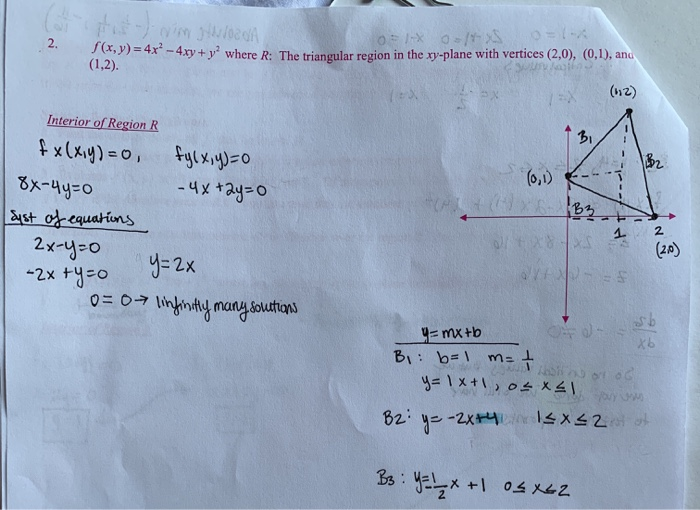 2. f(x,y) = 4x² – 4xy + y² where R: The triangular region in the xy-plane with vertices (2,0), (0,1), and
(1,2).
Interior of Region R
fx(x,y)=0, fy(x,y)=0
8x-4y=0 -4x+2y=0
Syst of equations
2x-y=0
-2x+y=0 y=2x
0=0→ infinitly many solutions
(1,2)
B1
B2
(0,1)
B3
1 2
(2,0)
y=mx+b
B1: b=1 m=1/1
y=1x+1, 0≤x≤1
B2: y=-2x+4 1≤x≤2
B3: y=-1/2x+1 0≤x≤2